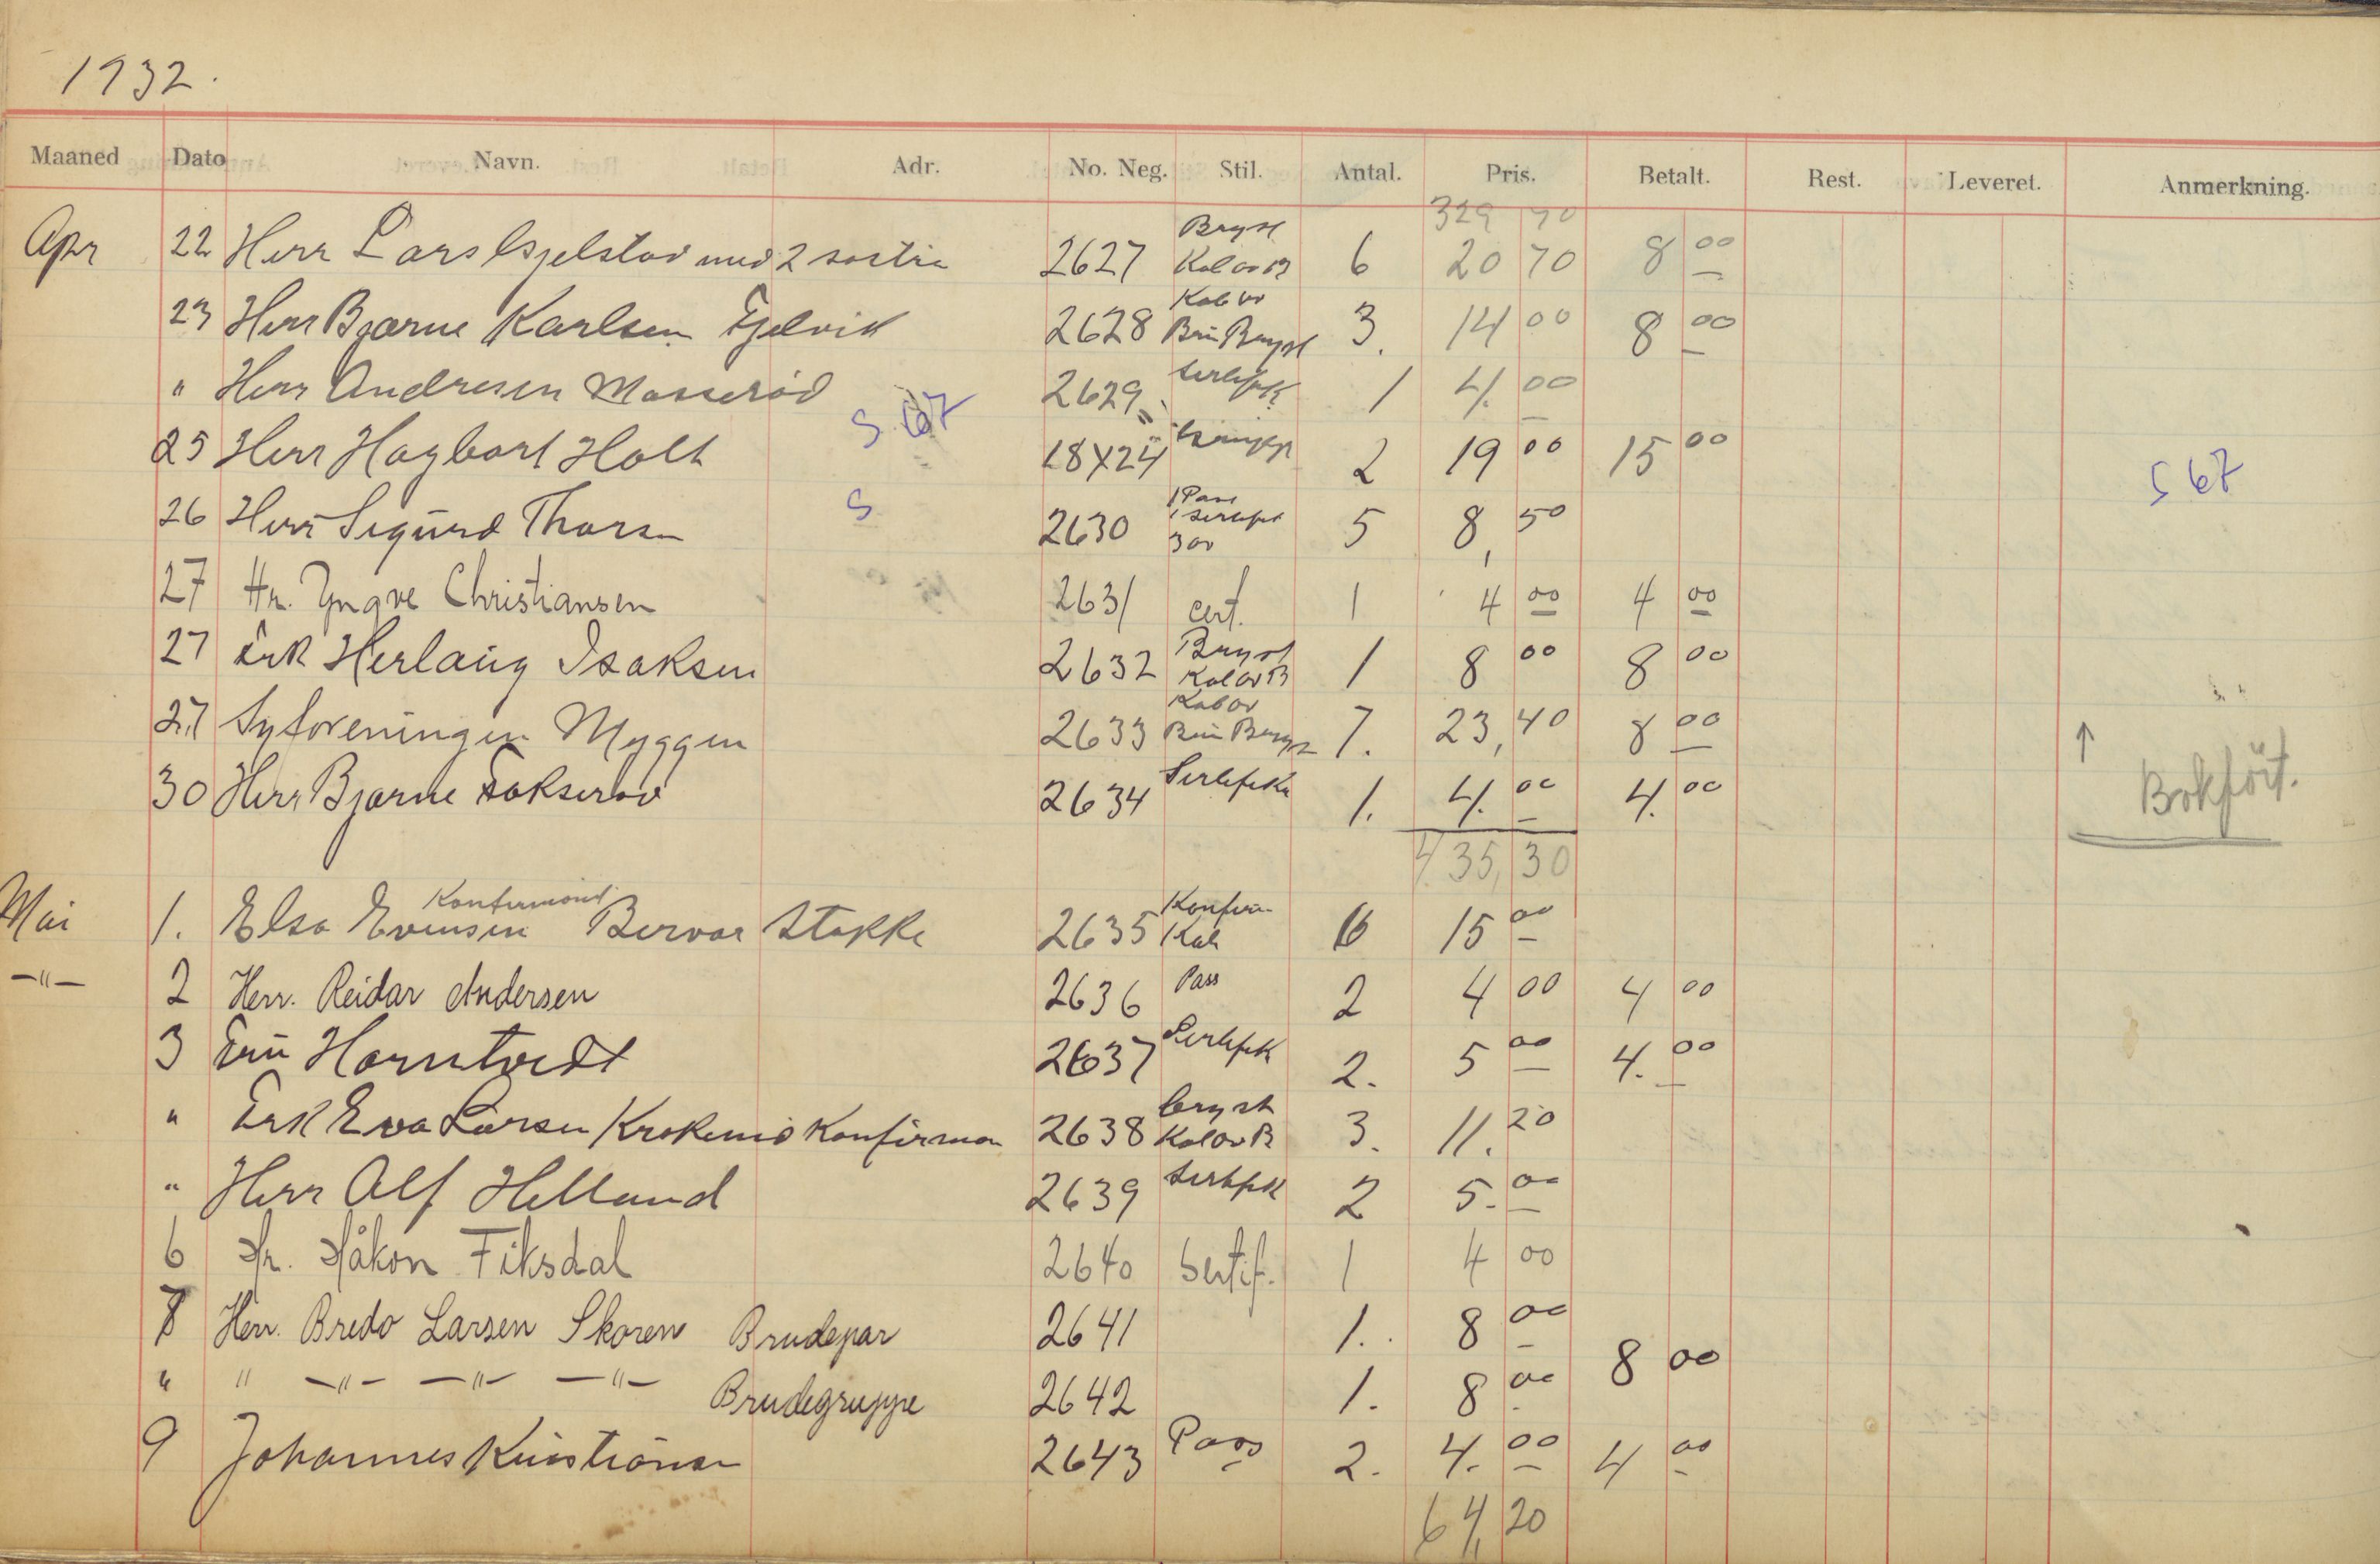 1932.
Maaned Dato Navn. Adr. No. Neg. Stil. Antal. Pris. Betalt. Rest. Leveret. Anmerkning.
329 70
Apr 22 Herr Lars Gjelstad med 2 søstre 2627 Bryst Kab 6 20 70 8 00
23 Herr Bjarne Karlsen Fjelvik 2628 Kab Bryst 3. 14 00 8 00
" Herr Andresen Masserød 2629 Sertifik 1 4. 00
25 Herr Hagbart Holt S 67 18X24 2 19 00 15 00 S 67
26 Herr Sigurd Thorsen S 2630 1 Pass 1 sertifik 3 av 5 8, 50
27 Hr. Yngve Christiansen 2631 cert. 1 4 00 4 00
27 Frk Herlaug Isaksen 2632 Bryst 1 8 00 8 00
27 Syforeningen Myggen 2633 Kab Bryst 7. 23, 40 8 00
↑ Bokført.
30 Herr Bjarne Fokserød 2634 Sertifik 1. 4. 00 4. 00
435, 30
Mai 1. Elsa Evensen Konfirmant Stokke 2635 Konfirm Kab 6 15 00
—"— 2 Herr. Reidar Andersen 2636 Pass 2 4 00 4 00
3 Fru Horntvedt 2637 Sertifik 2. 5 00 4. 00
" Frk Eva Larsen Krokemo Konfirman 2638 bryst 3. 11. 20
" Herr Alf Helland 2639 Sertifik 2 5. 00
6 Hr. Håkon Fiksdal 2640 Sertif. 1 4 00
8 Herr. Bredo Larsen Skoren Brudepar 2641 1. 8 00
" " —"— —"— —"— Brudegruppe 2642 1. 8 00 8 00
9 Johannes Kristiansen 2643 Pass 2. 4. 00 4 00
64, 20